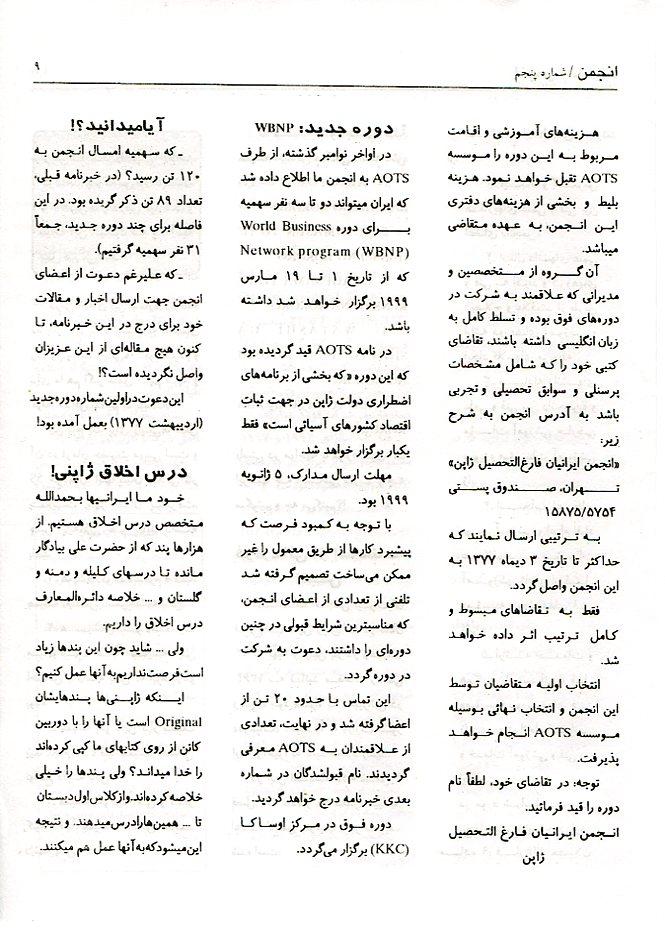 انجمن / شماره پنجم
۹
هزینه‌های آموزشی و اقامت
مربوط به این دوره را موسسه
AOTS تقبل خواهد نمود. هزینه
بلیط و بخشی از هزینه‌های دفتری
این انجمن، به عهده متقاضی
میباشد.
آن گروه از متخصصین و
مدیرانی که علاقمند به شرکت در
دوره‌های فوق بوده و تسلط کامل به
زبان انگلیسی داشته باشند، تقاضای
کتبی خود را که شامل مشخصات
پرسنلی و سوابق تحصیلی و تجربی
باشد به آدرس انجمن به شرح
زیر:
«انجمن ایرانیان فارغ‌التحصیل ژاپن»
تهران، صندوق پستی
۱۵۸۷۵/۵۷۵۴
به ترتیبی ارسال نمایند که
حداکثر تا تاریخ ۳ دیماه ۱۳۷۷ به
این انجمن واصل گردد.
فقط به تقاضاهای مبسوط و
کامل ترتیب اثر داده خواهد
شد.
انتخاب اولیه متقاضیان توسط
این انجمن و انتخاب نهائی بوسیله
موسسه AOTS انجام خواهد
پذیرفت.
توجه: در تقاضای خود، لطفاً نام
دوره را قید فرمائید.
انجمن ایرانیان فارغ التحصیل
ژاپن
دوره جدید: WBNP
در اواخر نوامبر گذشته، از طرف
AOTS به انجمن ما اطلاع داده شد
که ایران میتواند دو تا سه نفر سهمیه
برای دوره World Business
Network program (WBNP)
که از تاریخ ۱ تا ۱۹ مارس
۱۹۹۹ برگزار خواهد شد داشته
باشد.
در نامه AOTS قید گردیده بود
که این دوره «که بخشی از برنامه‌های
اضطراری دولت ژاپن در جهت ثبات
اقتصاد کشورهای آسیائی است» فقط
یکبار برگزار خواهد شد.
مهلت ارسال مدارک، ۵ ژانویه
۱۹۹۹ بود.
با توجه به کمبود فرصت که
پیشبرد کارها از طریق معمول را غیر
ممکن می‌ساخت تصمیم گرفته شد
تلفنی از تعدادی از اعضای انجمن،
که مناسبترین شرایط قبولی در چنین
دوره‌ای را داشتند، دعوت به شرکت
در دوره گردد.
این تماس با حدود ۲۰ تن از
اعضا گرفته شد و در نهایت، تعدادی
از علاقمندان به AOTS معرفی
گردیدند. نام قبولشدگان در شماره
بعدی خبرنامه درج خواهد گردید.
دوره فوق در مرکز اوساکا
(KKC) برگزار می‌گردد.
آیا میدانید؟!
ـ که سهمیه امسال انجمن به
۱۲۰ تن رسید؟ (در خبرنامه قبلی،
تعداد ۸۹ تن ذکر گردیده بود. در این
فاصله برای چند دوره جدید، جمعاً
۳۱ نفر سهمیه گرفتیم).
ـ که علیرغم دعوت از اعضای
انجمن جهت ارسال اخبار و مقالات
خود برای درج در این خبرنامه، تا
کنون هیچ مقاله‌ای از این عزیزان
واصل نگردیده است؟!
این دعوت در اولین شماره دوره جدید
(اردیبهشت ۱۳۷۷) بعمل آمده بود!
درس اخلاق ژاپنی!
خود ما ایرانیها بحمدالله
متخصص درس اخلاق هستیم. از
هزارها پند که از حضرت علی بیادگار
مانده تا درسهای کلیله و دمنه و
گلستان و ... خلاصه دائره‌المعارف
درس اخلاق را داریم.
ولی ... شاید چون این پندها زیاد
است فرصت نداریم به آنها عمل کنیم؟
اینکه ژاپنی‌ها پندهایشان
Original است یا آنها را با دوربین
کانن از روی کتابهای ما کپی کرده‌اند
را خدا میداند؟ ولی پندها را خیلی
خلاصه کرده‌اند. واز کلاس اول دبستان
تا ... همین‌ها را درس میدهند. و نتیجه
این میشود که به آنها عمل هم میکنند.